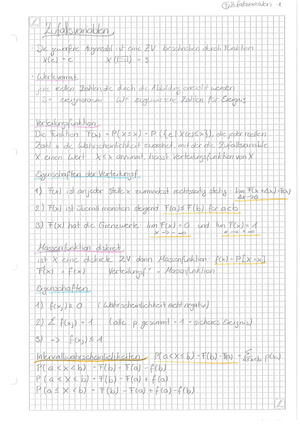 Zufallsvariablen 1
Zufallsvariablen
Die geworfene Augenzahl ist eine ZV beschrieben durch Funktion
X(e) = e
Wertevorrat
jene reellen Zahlen die durch die Abbildung erreicht werden
S = Ereignisraum W = zugewiesene Zahlen für Ereignis
Verteilungsfunktion
Die Funktion F(x) = P(X ≤ x) = P({e | X(e) ≤ x}), die jeder reellen
Zahl x die Wahrscheinlichkeit zuordnet, mit der die Zufallsvariable
X einen Wert X ≤ x annimmt, heisst Verteilungsfunktion von X
Eigenschaften der Verteilungsf.
1) F(x) ist an jeder Stelle x zumindest rechtsseitig stetig lim F(x+Δx) = F(x)
Δx→0
2) F(x) ist überall monoton steigend F(a) ≤ F(b) für a<b
3) F(x) hat die Grenzwerte lim F(x) = 0 und lim F(x) = 1
x→-∞ x→+∞
Massenfunktion diskret
ist X eine diskrete ZV dann Massenfunktion f(x) = P[X = x]
F'(x) = f(x) Verteilungsf' = Massenfunktion
Eigenschaften
1) f(xj) ≥ 0 (Wahrscheinlichkeit nicht negativ)
2) Σ f(xj) = 1 (alle p gesammt = 1 = sicheres Ereignis)
3) => f(xj) ≤ 1
Intervallwahrscheinlichkeiten P(a<X≤b) = F(b) - F(a) = Σ
P(a < X < b) = F(b) - F(a) - f(b)
P(a ≤ X ≤ b) = F(b) - F(a) + f(a)
P(a ≤ X < b) = F(b) - F(a) + f(a) - f(b)